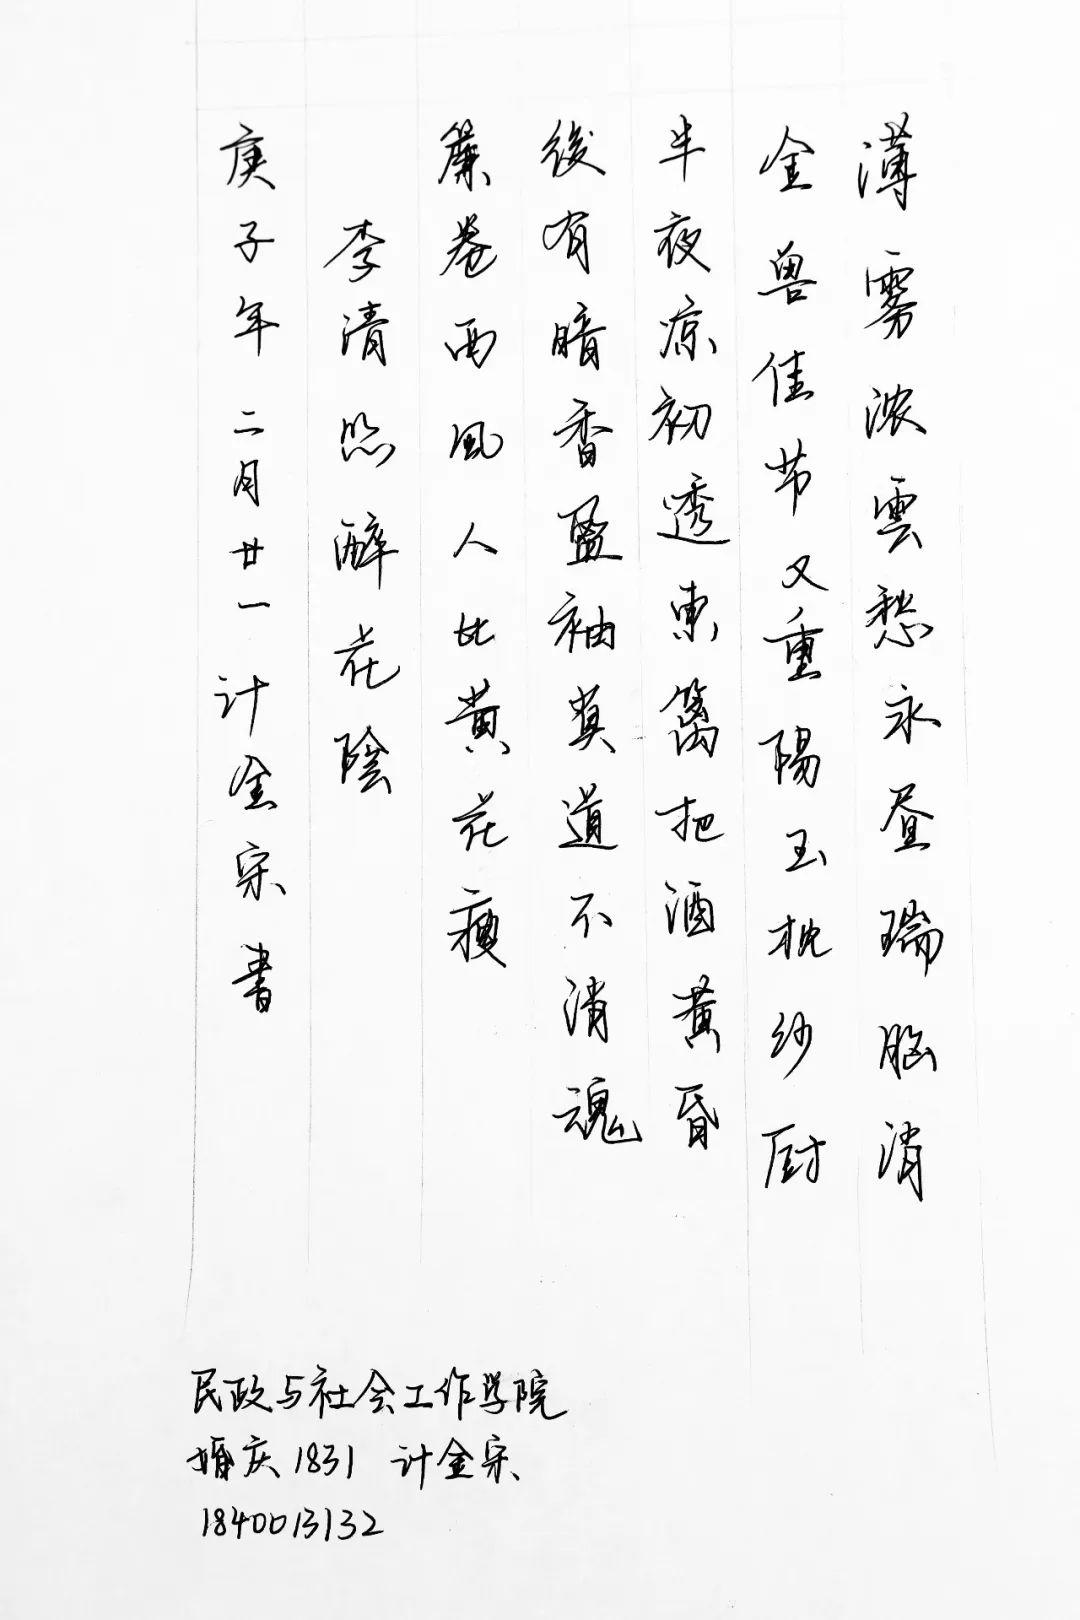 薄雾浓雲愁永昼瑞脑消
金兽佳节又重陽玉枕纱厨
半夜凉初透東篱把酒黄昏
後有暗香盈袖莫道不消魂
簾卷西風人比黄花瘦
李清照醉花陰
庚子年二月廿一计金宗書
民政与社会工作学院
婚庆1831 计金宗
1840013132